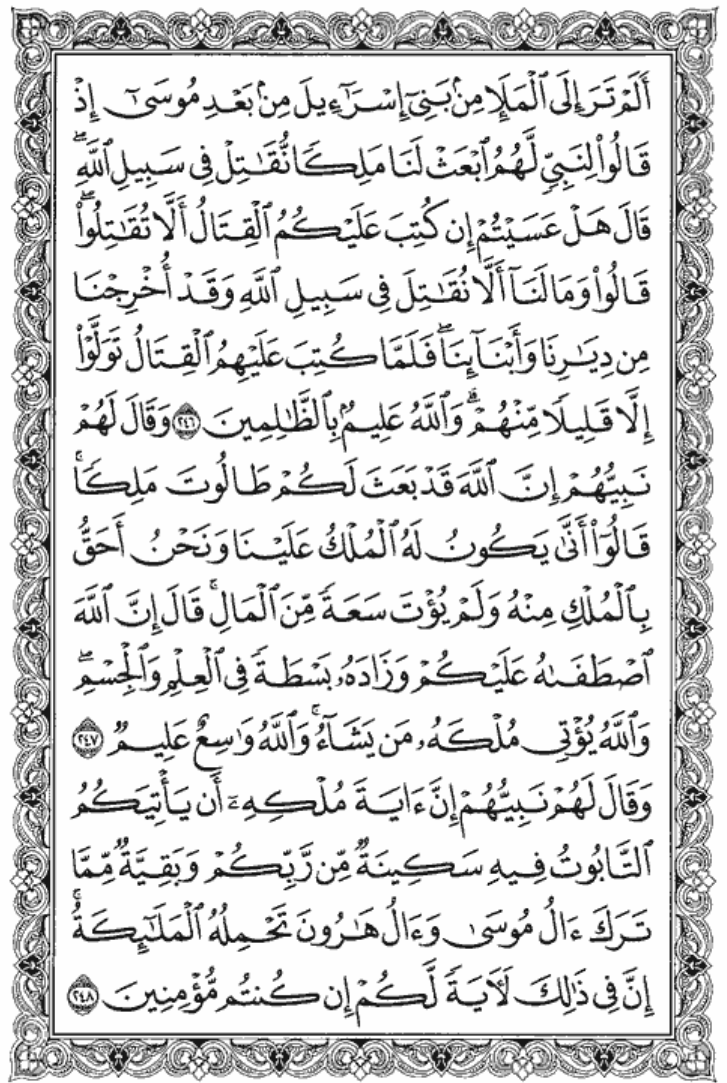 أَلَمْ تَرَ إِلَى ٱلْمَلَإِ مِنۢ بَنِىٓ إِسْرَٰٓءِيلَ مِنۢ بَعْدِ مُوسَىٰٓ إِذْ
قَالُوا۟ لِنَبِىٍّ لَّهُمُ ٱبْعَثْ لَنَا مَلِكًا نُّقَـٰتِلْ فِى سَبِيلِ ٱللَّهِ ۖ
قَالَ هَلْ عَسَيْتُمْ إِن كُتِبَ عَلَيْكُمُ ٱلْقِتَالُ أَلَّا تُقَـٰتِلُوا۟ ۖ
قَالُوا۟ وَمَا لَنَآ أَلَّا نُقَـٰتِلَ فِى سَبِيلِ ٱللَّهِ وَقَدْ أُخْرِجْنَا
مِن دِيَـٰرِنَا وَأَبْنَآئِنَا ۖ فَلَمَّا كُتِبَ عَلَيْهِمُ ٱلْقِتَالُ تَوَلَّوْا۟
إِلَّا قَلِيلًا مِّنْهُمْ ۗ وَٱللَّهُ عَلِيمٌۢ بِٱلظَّـٰلِمِينَ ٢٤٦ وَقَالَ لَهُمْ
نَبِيُّهُمْ إِنَّ ٱللَّهَ قَدْ بَعَثَ لَكُمْ طَالُوتَ مَلِكًا ۚ
قَالُوٓا۟ أَنَّىٰ يَكُونُ لَهُ ٱلْمُلْكُ عَلَيْنَا وَنَحْنُ أَحَقُّ
بِٱلْمُلْكِ مِنْهُ وَلَمْ يُؤْتَ سَعَةً مِّنَ ٱلْمَالِ ۚ قَالَ إِنَّ ٱللَّهَ
ٱصْطَفَىٰهُ عَلَيْكُمْ وَزَادَهُۥ بَسْطَةً فِى ٱلْعِلْمِ وَٱلْجِسْمِ ۖ
وَٱللَّهُ يُؤْتِى مُلْكَهُۥ مَن يَشَآءُ ۚ وَٱللَّهُ وَٰسِعٌ عَلِيمٌ ٢٤٧
وَقَالَ لَهُمْ نَبِيُّهُمْ إِنَّ ءَايَةَ مُلْكِهِۦٓ أَن يَأْتِيَكُمُ
ٱلتَّابُوتُ فِيهِ سَكِينَةٌ مِّن رَّبِّكُمْ وَبَقِيَّةٌ مِّمَّا
تَرَكَ ءَالُ مُوسَىٰ وَءَالُ هَـٰرُونَ تَحْمِلُهُ ٱلْمَلَـٰٓئِكَةُ ۚ
إِنَّ فِى ذَٰلِكَ لَـَٔايَةً لَّكُمْ إِن كُنتُم مُّؤْمِنِينَ ٢٤٨